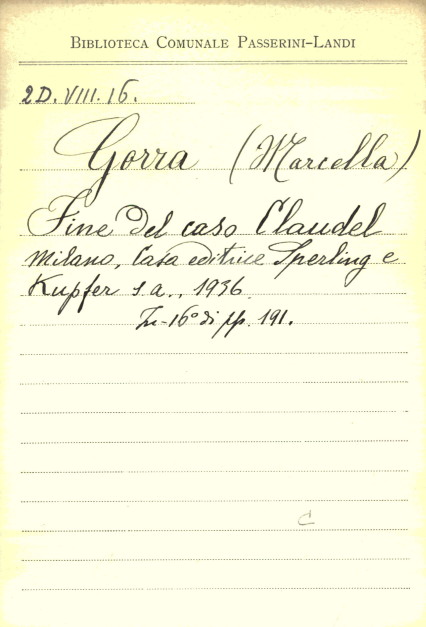 BIBLIOTECA COMUNALE PASSERINI-LANDI
2D. VIII. 16.
Gorra (Marcella)
Fine del caso Claudel
Milano, Casa editrice Sperling e
Kupfer s.a., 1936.
In-16° di pp. 191.
C